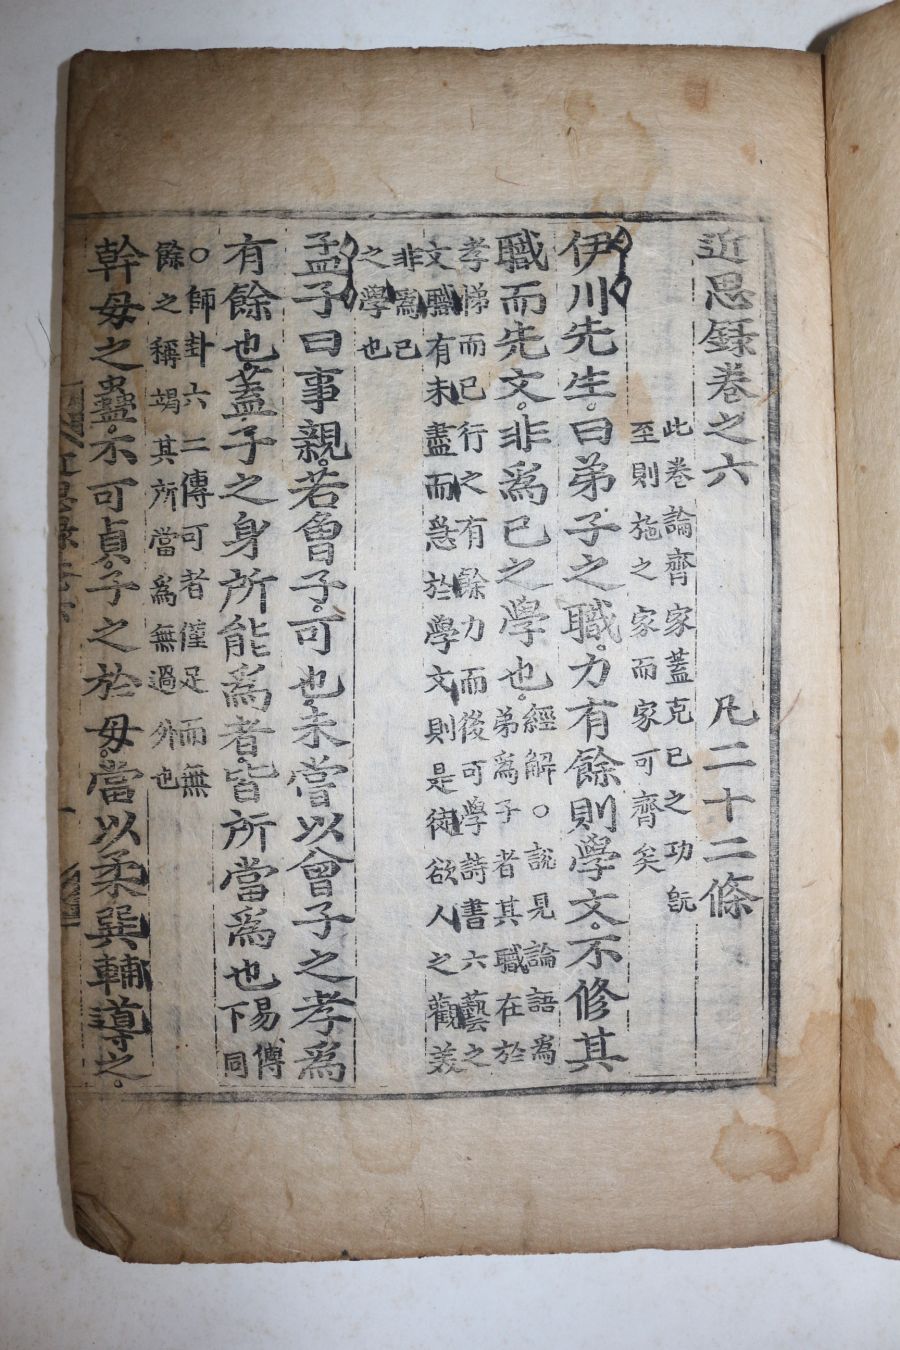 近思録卷之六 凡二十二條
此卷論齊家蓋克己之功旣
至則施之家而家可齊矣
伊川先生曰弟子之職力有餘則學文不修其
職而先文非爲己之學也
經解○說見論語爲
弟爲子者其職在於
孝悌而已行之有餘力而後可學詩書六藝之
文職有未盡而急於學文則是徒欲人之觀美
非爲己
之學也
孟子曰事親若曾子可也未嘗以曾子之孝爲
有餘也蓋子之身所能爲者皆所當爲也
易傳
下同
○師卦六二傳可者僅足而無
餘之稱竭其所當爲無過外也
幹母之蠱不可貞子之於母當以柔巽輔導之